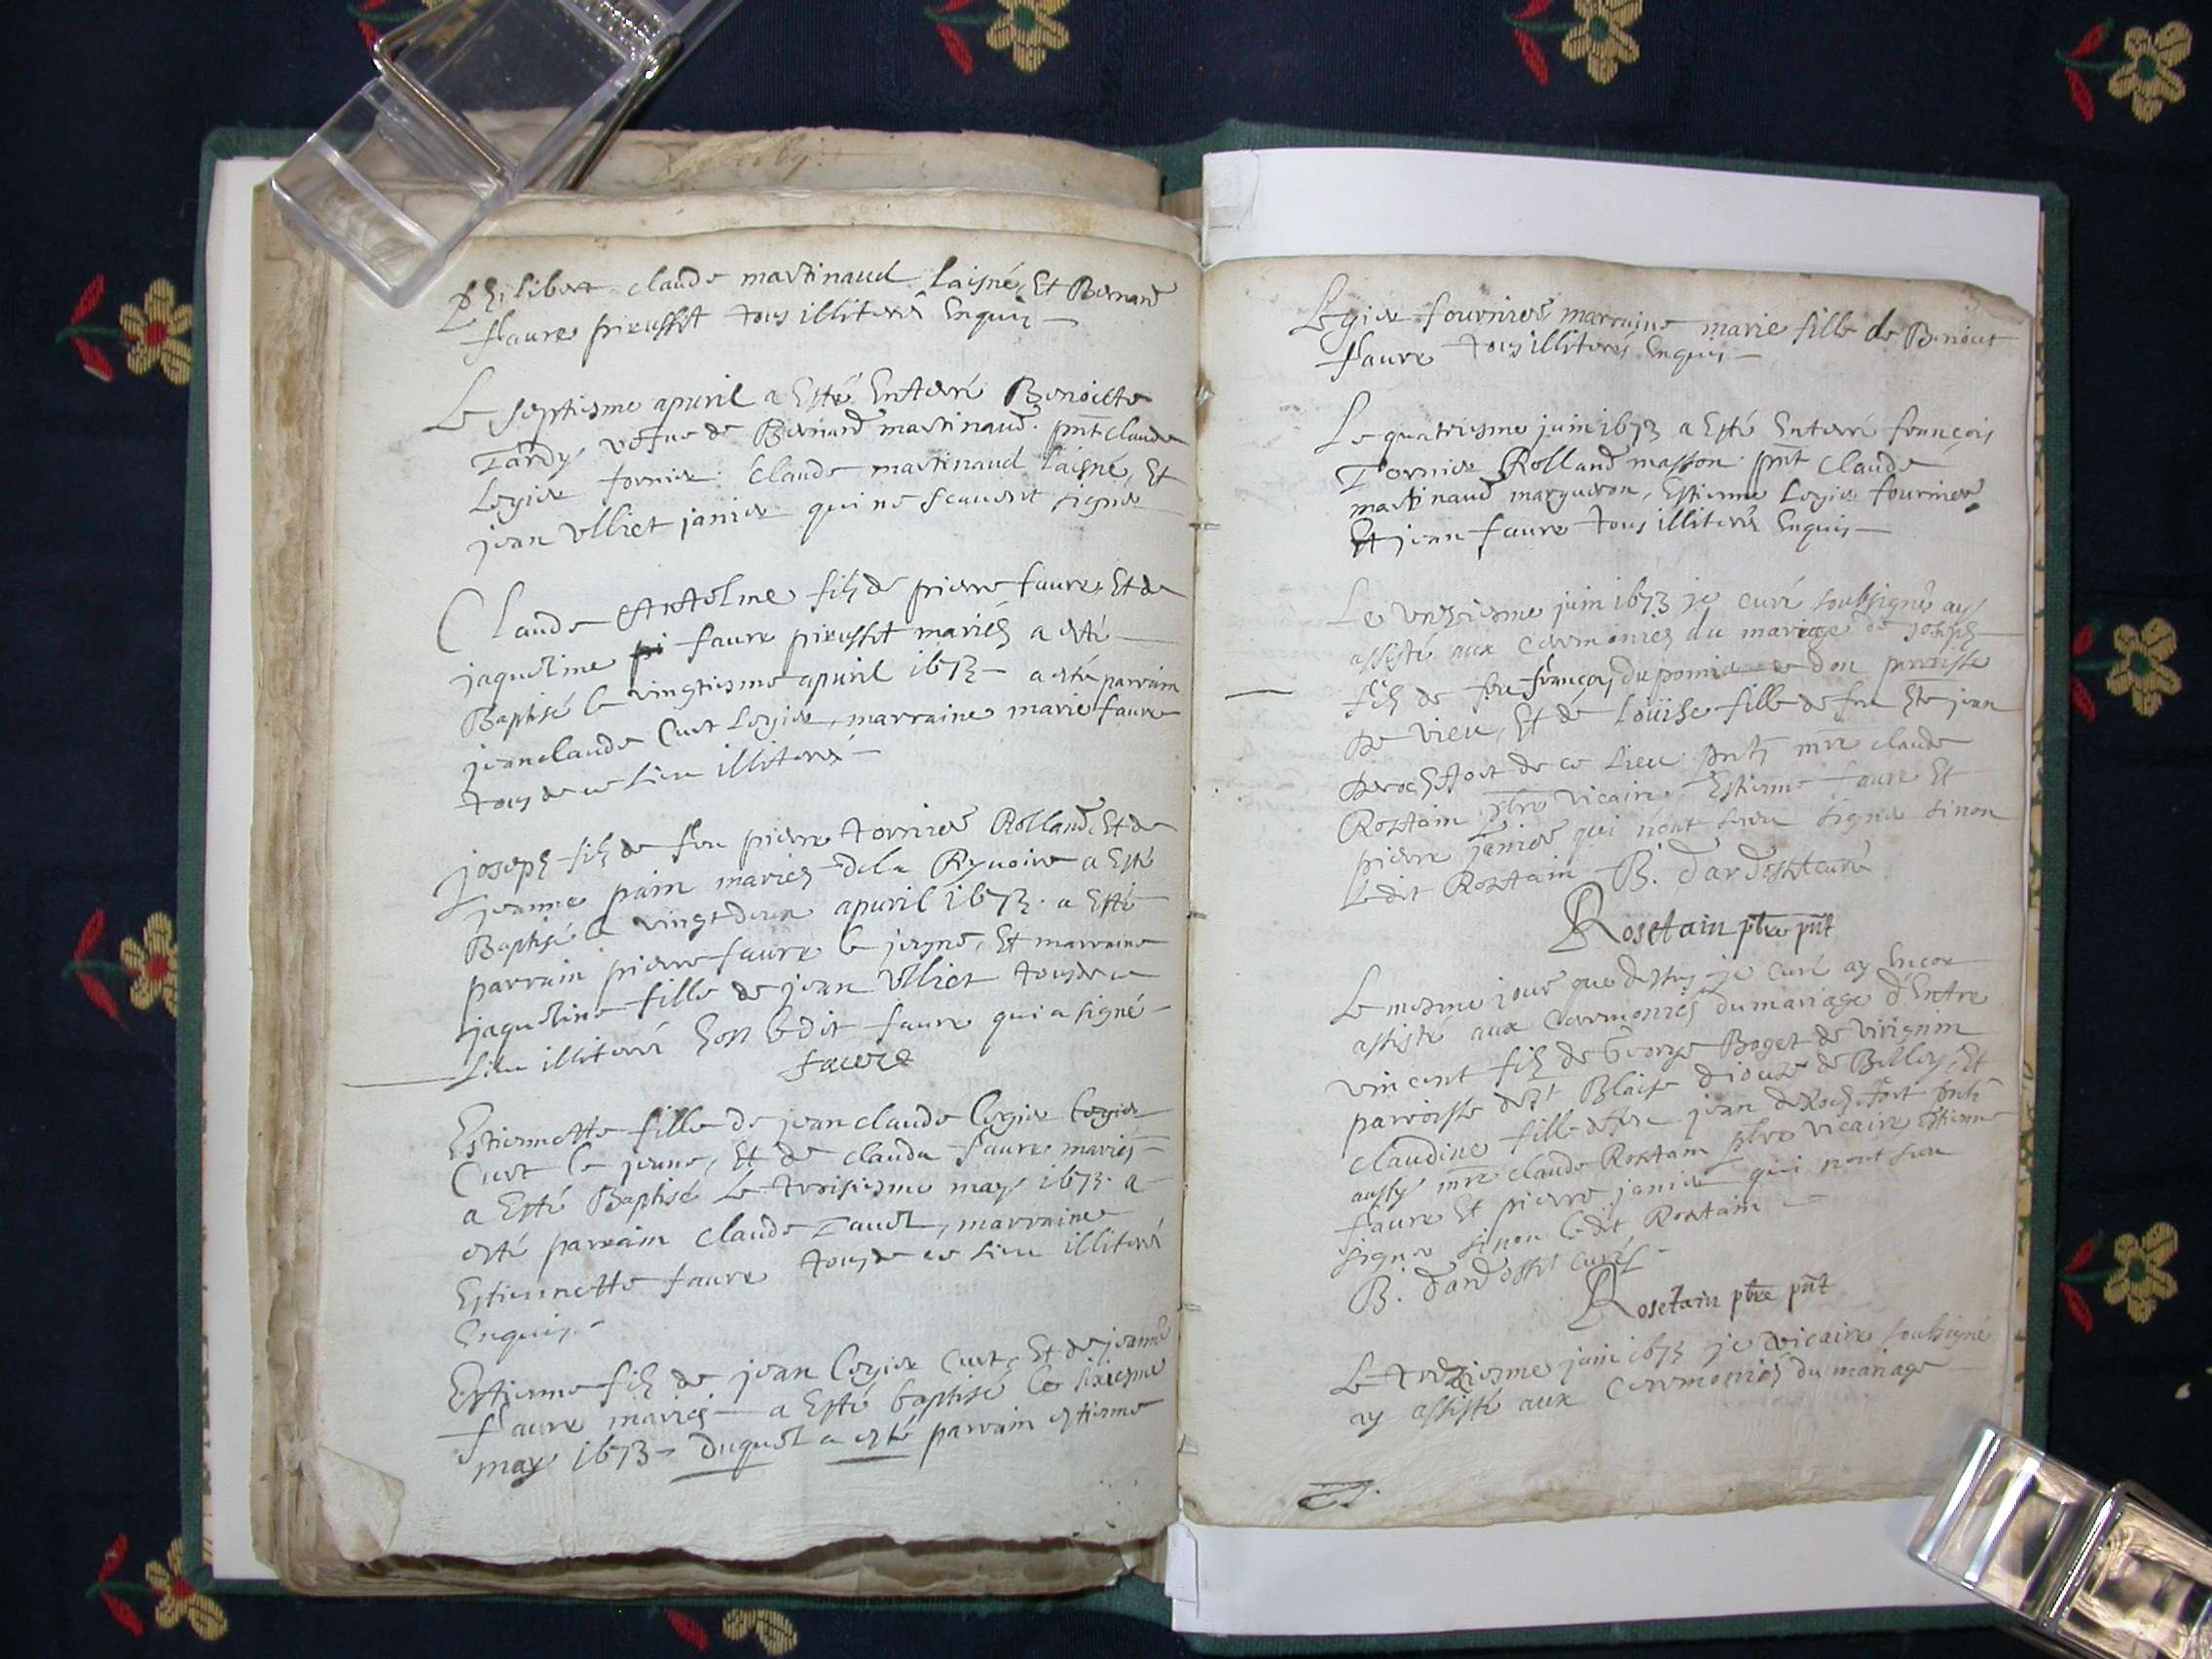 Philibert claude martinaud laisné, Et Bernard
faure pirusset tous illiterés Enquis
Le septiesme apuril a Esté Enterré Benoitte
Tardy vefue de Bernard martinaud. pnt claude
Legier fornier claude martinaud laisné, Et
jean Vlliet janier qui ne scauent signer
Claude Antelme filz de pierre faure, Et de
jaqueline faure pirusset mariés a esté
Baptisé le vingtiesme apuril 1673 a esté parrain
jeanclaude Curt Legier, marraine marie faure
tous de ce lieu illiterés
joseph filz de feu pierre tornier Rolland, Et de
jeanne pain mariés de la Ryuoire a Esté
Baptisé le vingt deux apuril 1673. a Esté
parrain pierre faure le jeune, Et marraine
jaqueline fille de jean Vlliet tous de ce
lieu illiterés hors ledit faure qui a signé
faure
Estiennette fille de jean claude Legier Legier
Curt le jeune, Et de clauda faure mariés
a Esté Baptisé le troisiesme may 1673. a
esté parrain claude , marraine
Estiennette faure tous de ce lieu illiterés
Enquis
Estienne filz de jean Legier Curt, Et de jeanne
faure mariés a Esté baptisé le sixiesme
may 1673 duquel a esté parrain estienne
Legier fournier marraine marie fille de Benoict
faure tous illiterés Enquis
Le quatriesme juin 1673 a Esté Enterré françois
Tornier Rolland masson. pnt claude
martinaud margueron, Estienne Legier fournier
Et jean faure tous illiterés Enquis
Le unziesme juin 1673 je curé soubsigné ay
assisté aux ceremonies du mariage de joseph
filz de feu françois dupomier de don parroisse
De vieu, Et de Loüise fille de feu jean
Derochefort de ce lieu. pnts mre claude
Rostain pbre vicaire, Estienne faure Et
pierre janier qui nont sceu signer sinon
ledit Rostain B. Dardosset curé
Rosetain ptre pnt
Le mesme jour que dessus je curé ay Encor
assisté aux ceremonies du mariage d'Entre
vincent filz de George Boget de virignin
parroisse de st Blaise dioceze de Belley, Et
claudine fille de feu jean de Rochefort pnts
aussy mre claude Rostain pbre vicaire Estienne
faure Et pierre janier qui nont sceu
signer sinon ledit Rostain
B. Dardosset curé
Rosetain ptre pnt
Le treziesme juin 1673 je vicaire soubsigné
ay assisté aux ceremonies du mariage